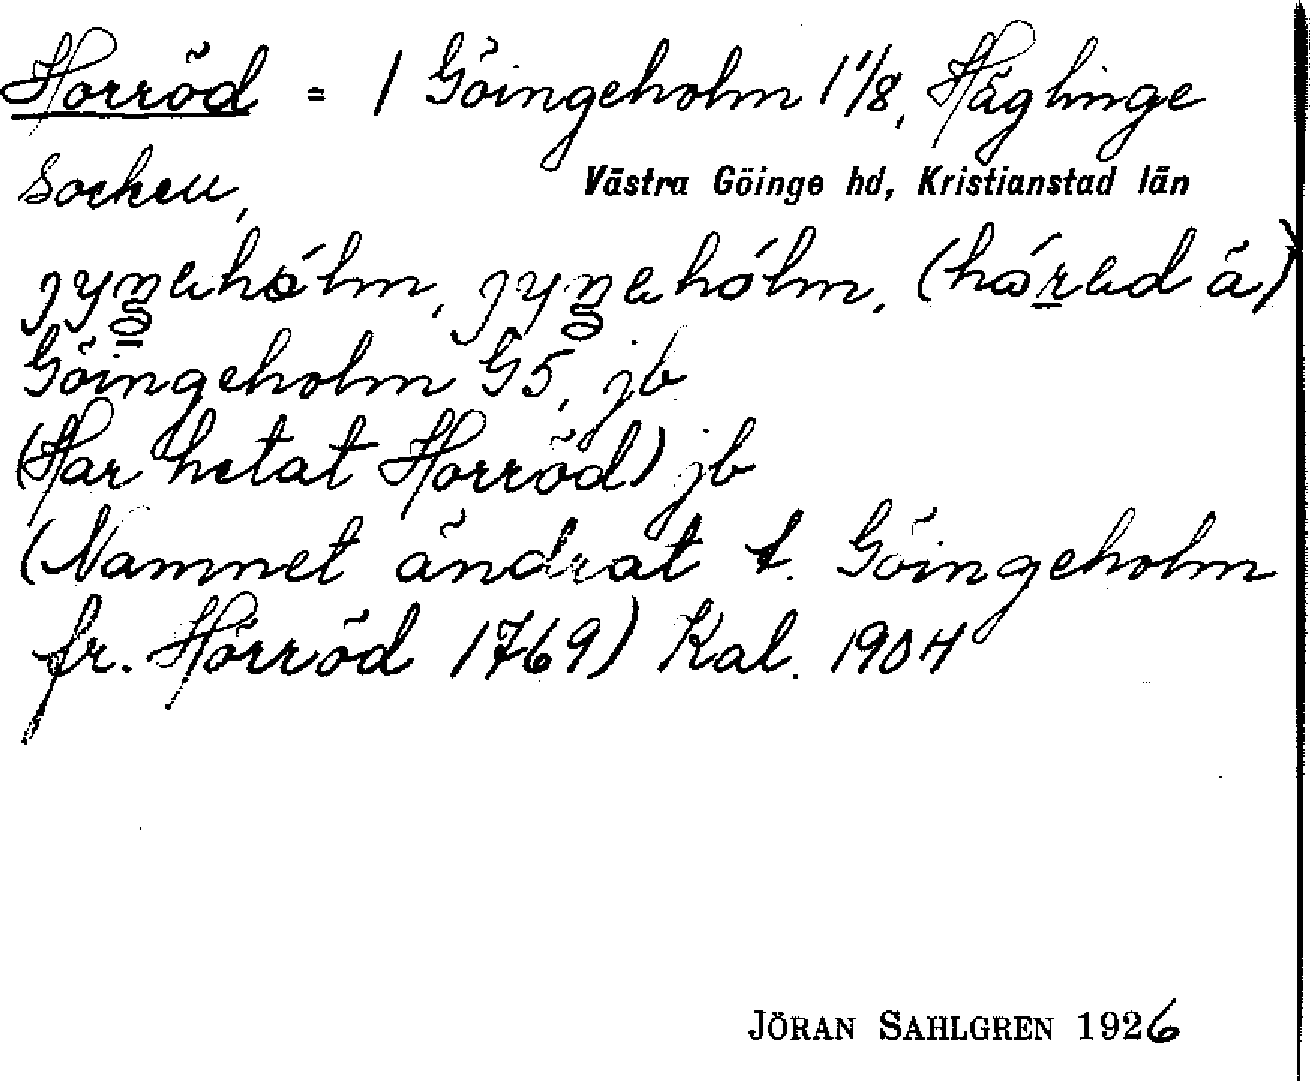 Horröd = 1 Göingeholm 1 1/8, Häglinge
socken, Västra Göinge hd, Kristianstad län
Göingeholm G5, jb
(Har hetat Horröd) jb
(Namnet ändrat t. Göingeholm
fr. Horröd 1769) Kal. 1904
JÖRAN SAHLGREN 1926